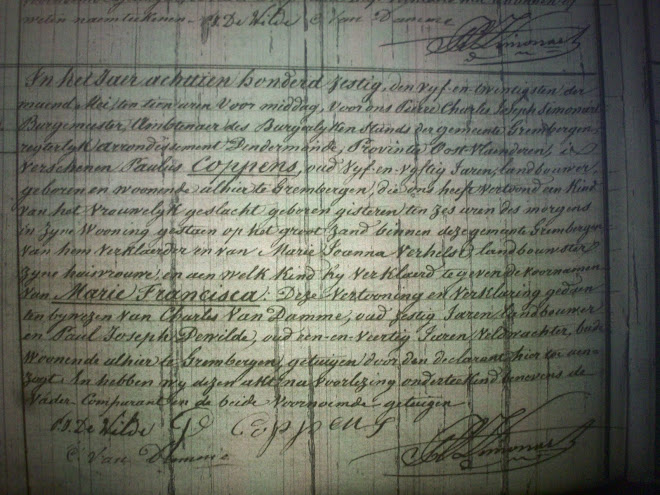 weten naamteekenen. P.J. De Wilde C. Van Damme
P.C.J. Simonart
In het Jaer achttien honderd zestig, den vyf-en-twentigsten der
maend Mei, ten tien uren voor middag, voor ons Pierre Charles Joseph Simonart
Burgemeester, Ambtenaer des Burgerlyken Stands der gemeente Grembergen,
regterlyk arrondissement Dendermonde, Provintie Oost-Vlaenderen, is
verschenen Paulus Coppens, oud vyf-en-vyftig Jaren, landbouwer,
geboren en woonende alhier te Grembergen, die ons heeft vertoond een kind
van het vrouwelyk geslacht geboren gisteren ten zes uren des morgens
in zyne wooning gestaen op het groot zand binnen deze gemeente Grembergen
van hem verklaerder en van Marie Joanna Verhelst, landbouwster
zyne huisvrouw; en aen welk kind hy verklaerd te geven de voornamen
van Marie Francisca. Deze vertooning en verklaring gedaen
ten bywezen van Charles Van Damme, oud zestig Jaren, landbouwer
en Paul Joseph Dewilde, oud een-en-veertig Jaren, veldwachter, beide
woonende alhier te Grembergen, getuigen door den declarant hier toe aen-
zogt. En hebben wy dezen akt na voorlezing onderteekend benevens de
vader Comparant en de beide voornoemde getuigen.
P.J. De Wilde Coppens
C. Van Damme P.C.J. Simonart